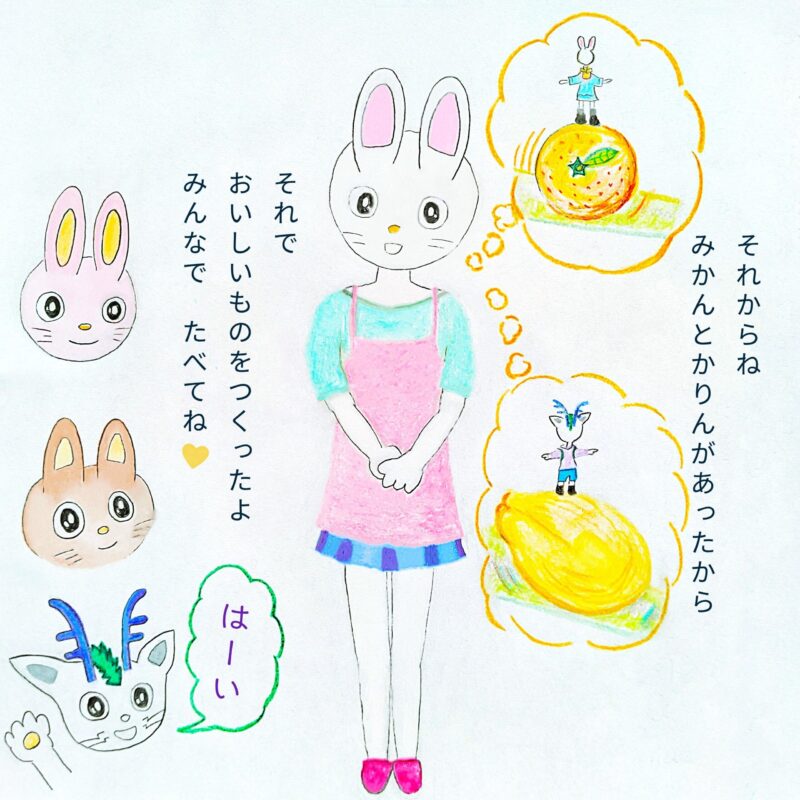 それからね
みかんとかりんがあったから
それで
おいしいものをつくったよ
みんなで たべてね
はーい